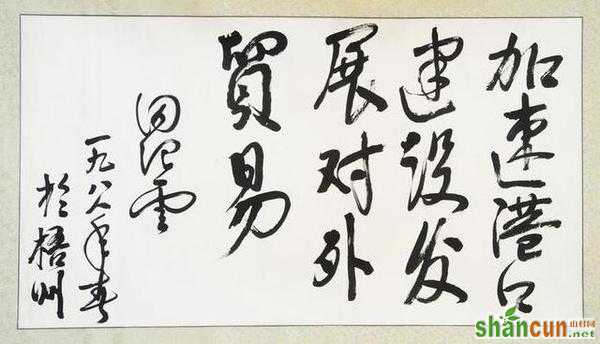 加速港口
建设发
展对外
貿易
田纪雲
一九八八年春
於梧州
shancun
山村网
.net